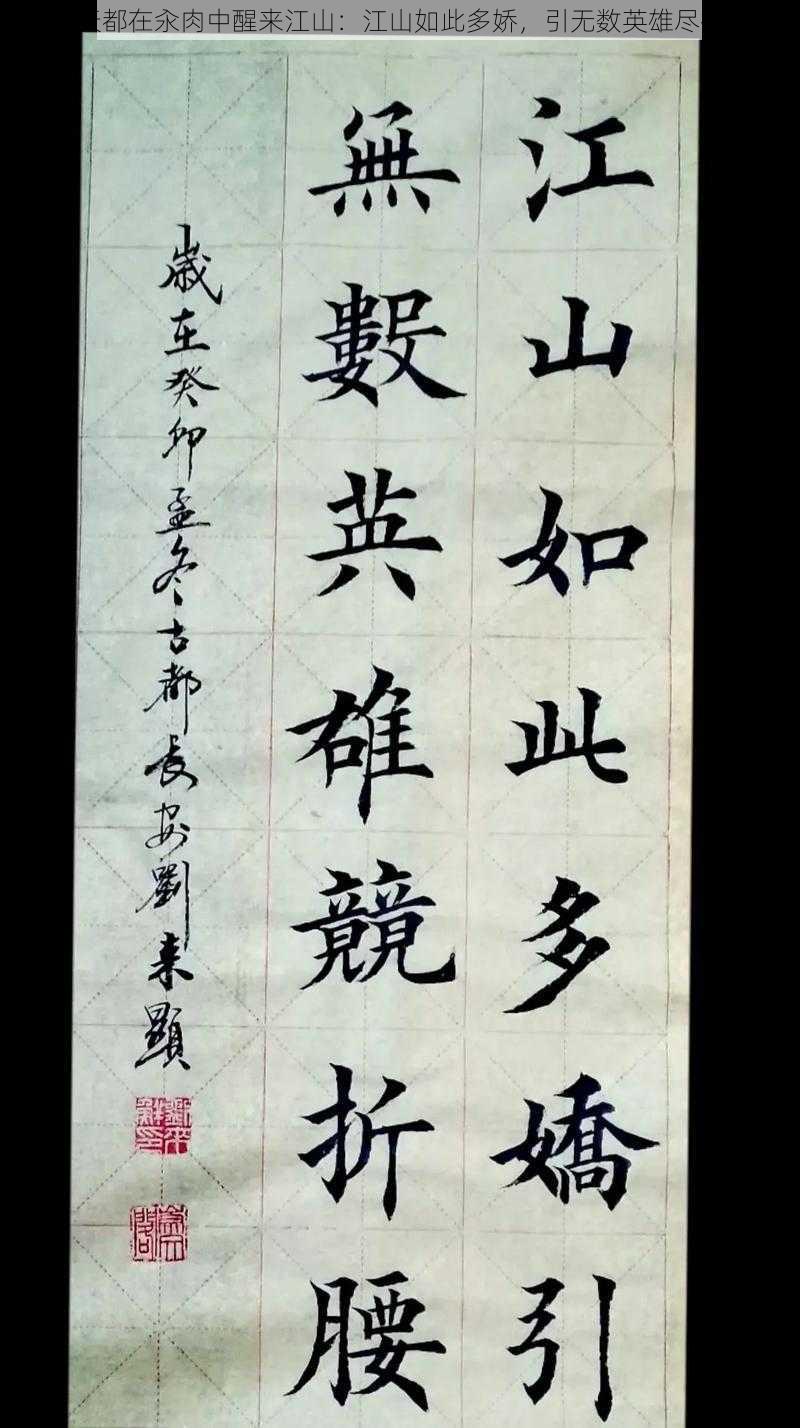 都在汆肉中醒来江山：江山如此多娇，引无数英雄尽
江山如此多嬌引
無數英雄競折腰
歲在癸卯孟冬古都長安劉來顯